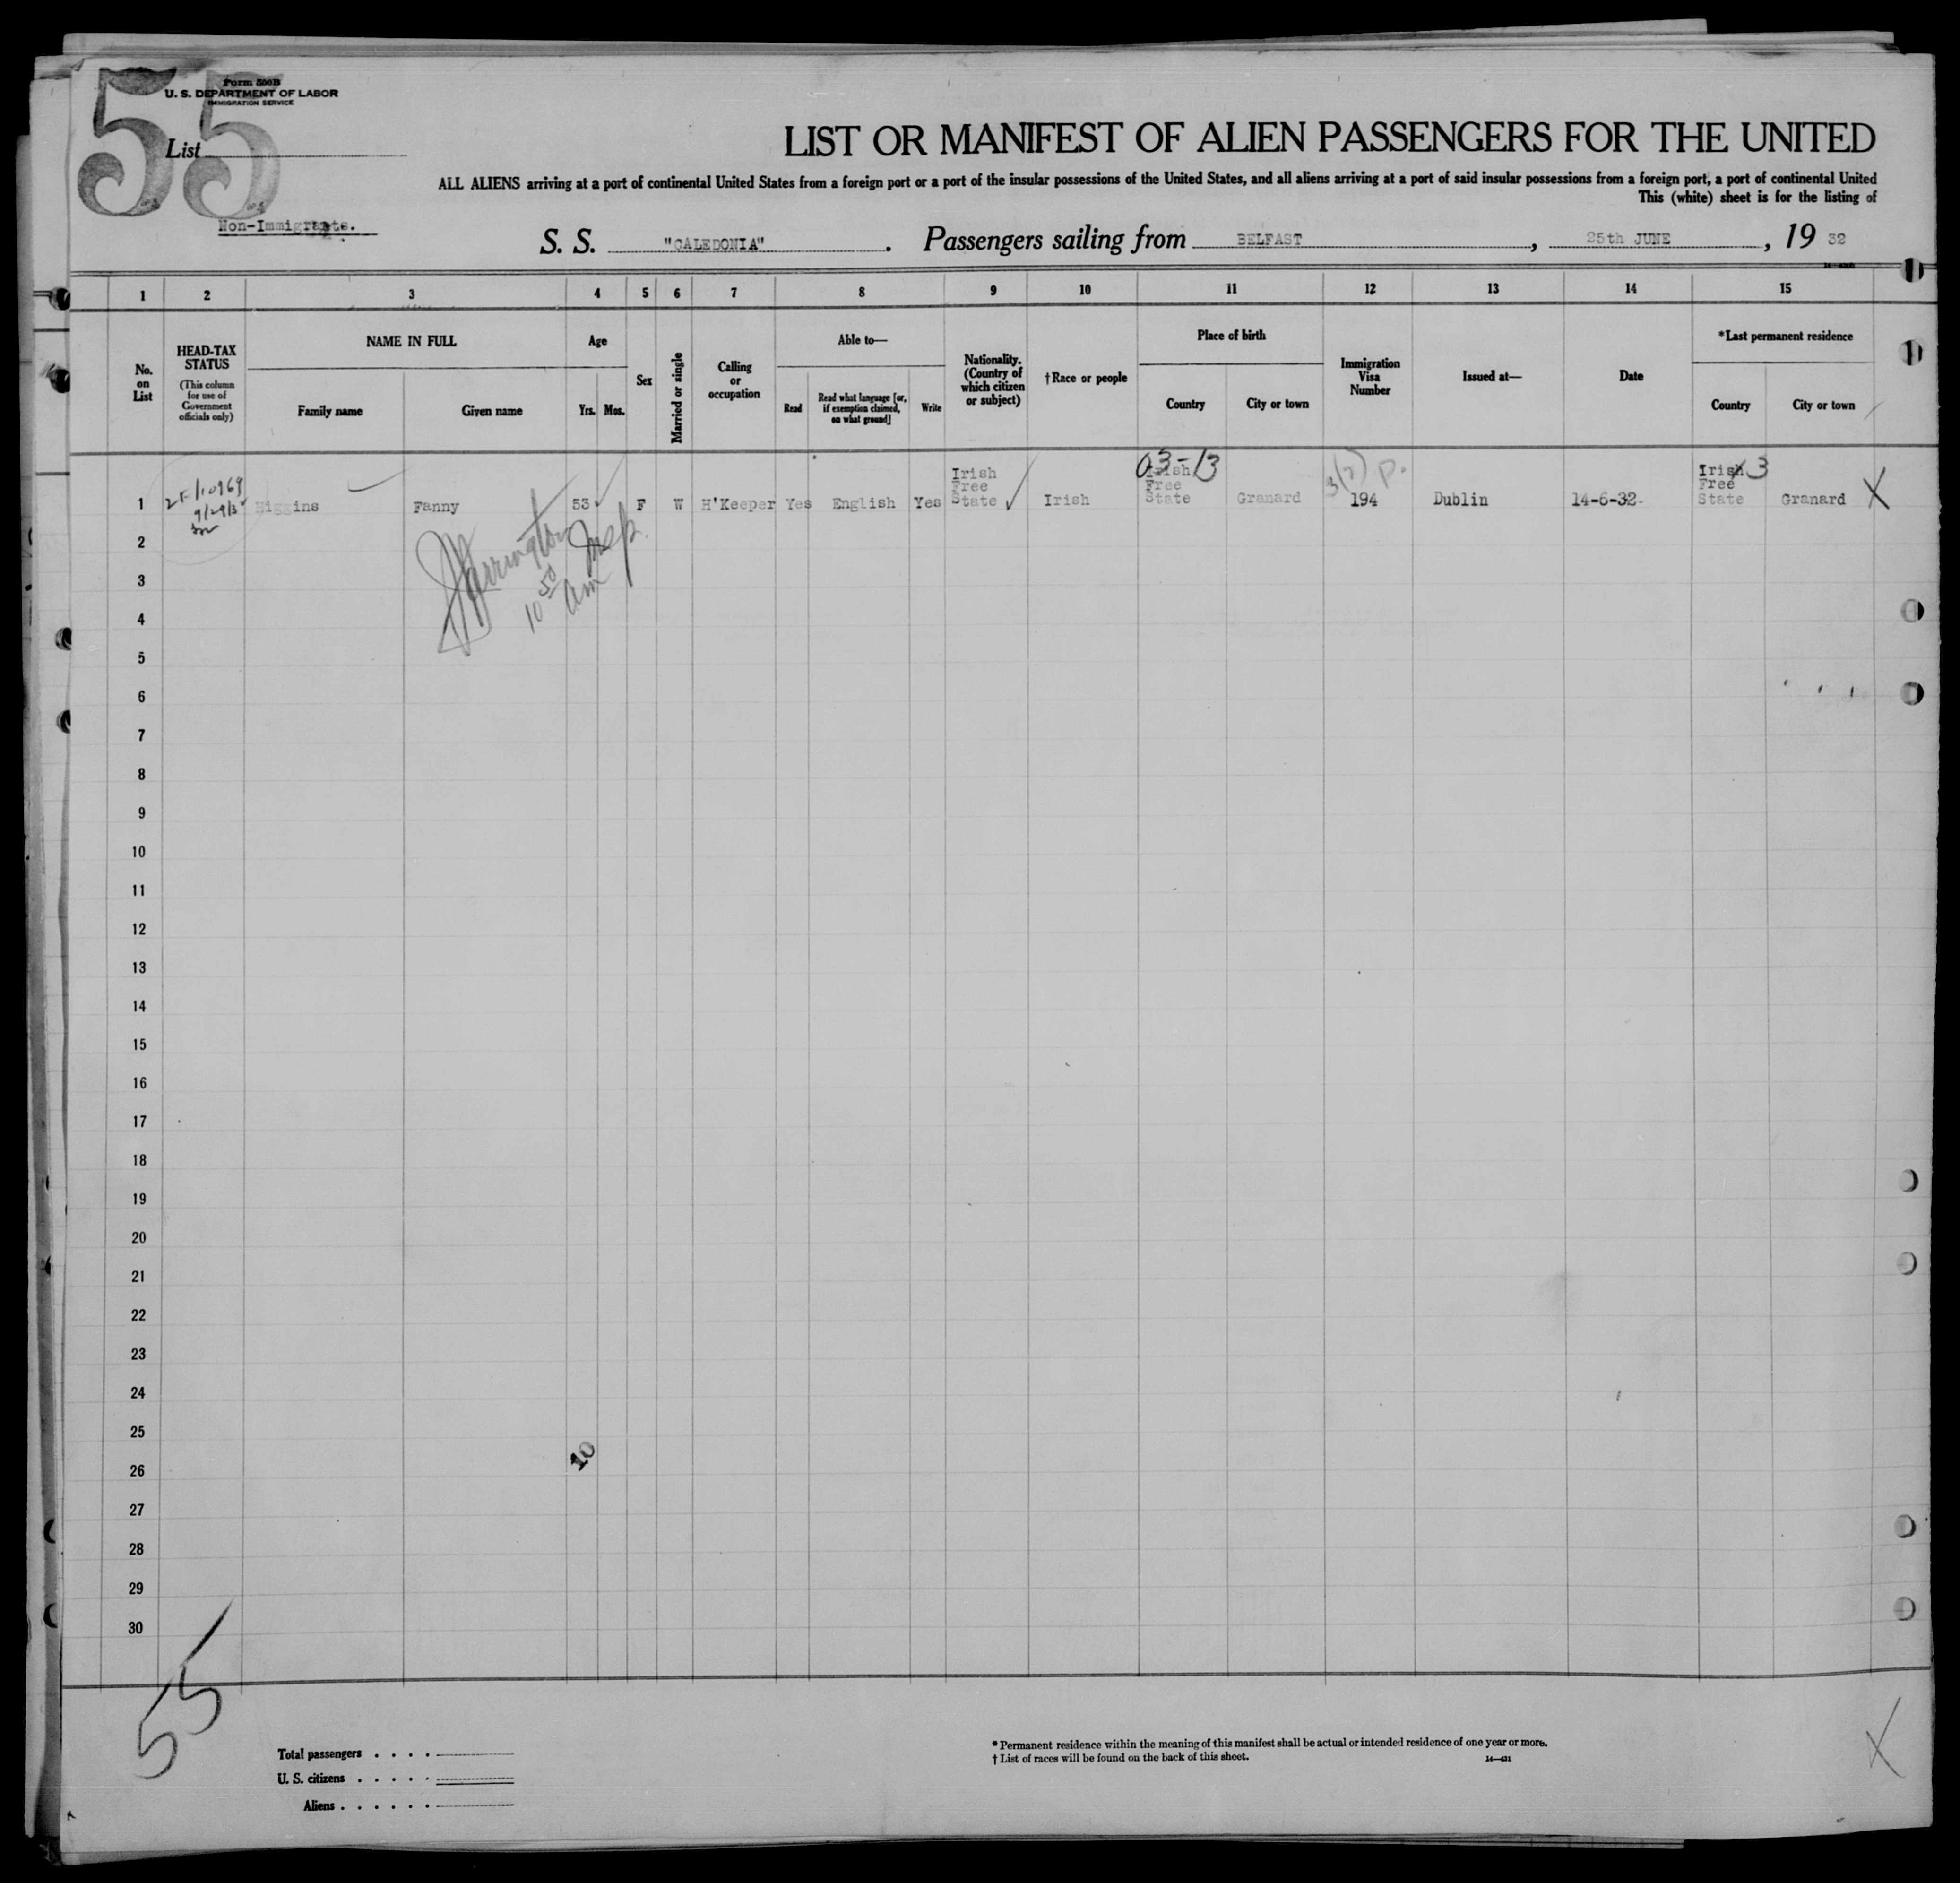 55
Form 500B
U. S. DEPARTMENT OF LABOR
IMMIGRATION SERVICE
List
Non-Immigrants.
LIST OR MANIFEST OF ALIEN PASSENGERS FOR THE UNITED
ALL ALIENS arriving at a port of continental United States from a foreign port or a port of the insular possessions of the United States, and all aliens arriving at a port of said insular possessions from a foreign port, a port of continental United
This (white) sheet is for the listing of
S. S. "CALEDONIA". Passengers sailing from BELFAST, 25th JUNE, 19 32
1 2 3 4 5 6 7 8 9 10 11 12 13 14 15
No. on List
HEAD-TAX STATUS
(This column for use of Government officials only)
NAME IN FULL
Family name
Given name
Age
Yrs. Mos.
Sex
Married or single
Calling or occupation
Able to—
Read
Read what language [or, if exemption claimed, on what ground]
Write
Nationality. (Country of which citizen or subject)
†Race or people
Place of birth
Country
City or town
Immigration Visa Number
Issued at—
Date
*Last permanent residence
Country
City or town
03-13
1 Higgins Fanny 53 F W H'Keeper Yes English Yes Irish Free State Irish Irish Free State Granard 194 Dublin 14-6-32- Irish Free State Granard X
3
Harrington Insp.
10 50 am
2
3
4
5
6
7
8
9
10
11
12
13
14
15
16
17
18
19
20
21
22
23
24
25
10
26
27
28
29
30
55
Total passengers . . . .
U. S. citizens . . . . .
Aliens . . . . . .
* Permanent residence within the meaning of this manifest shall be actual or intended residence of one year or more.
† List of races will be found on the back of this sheet.
X